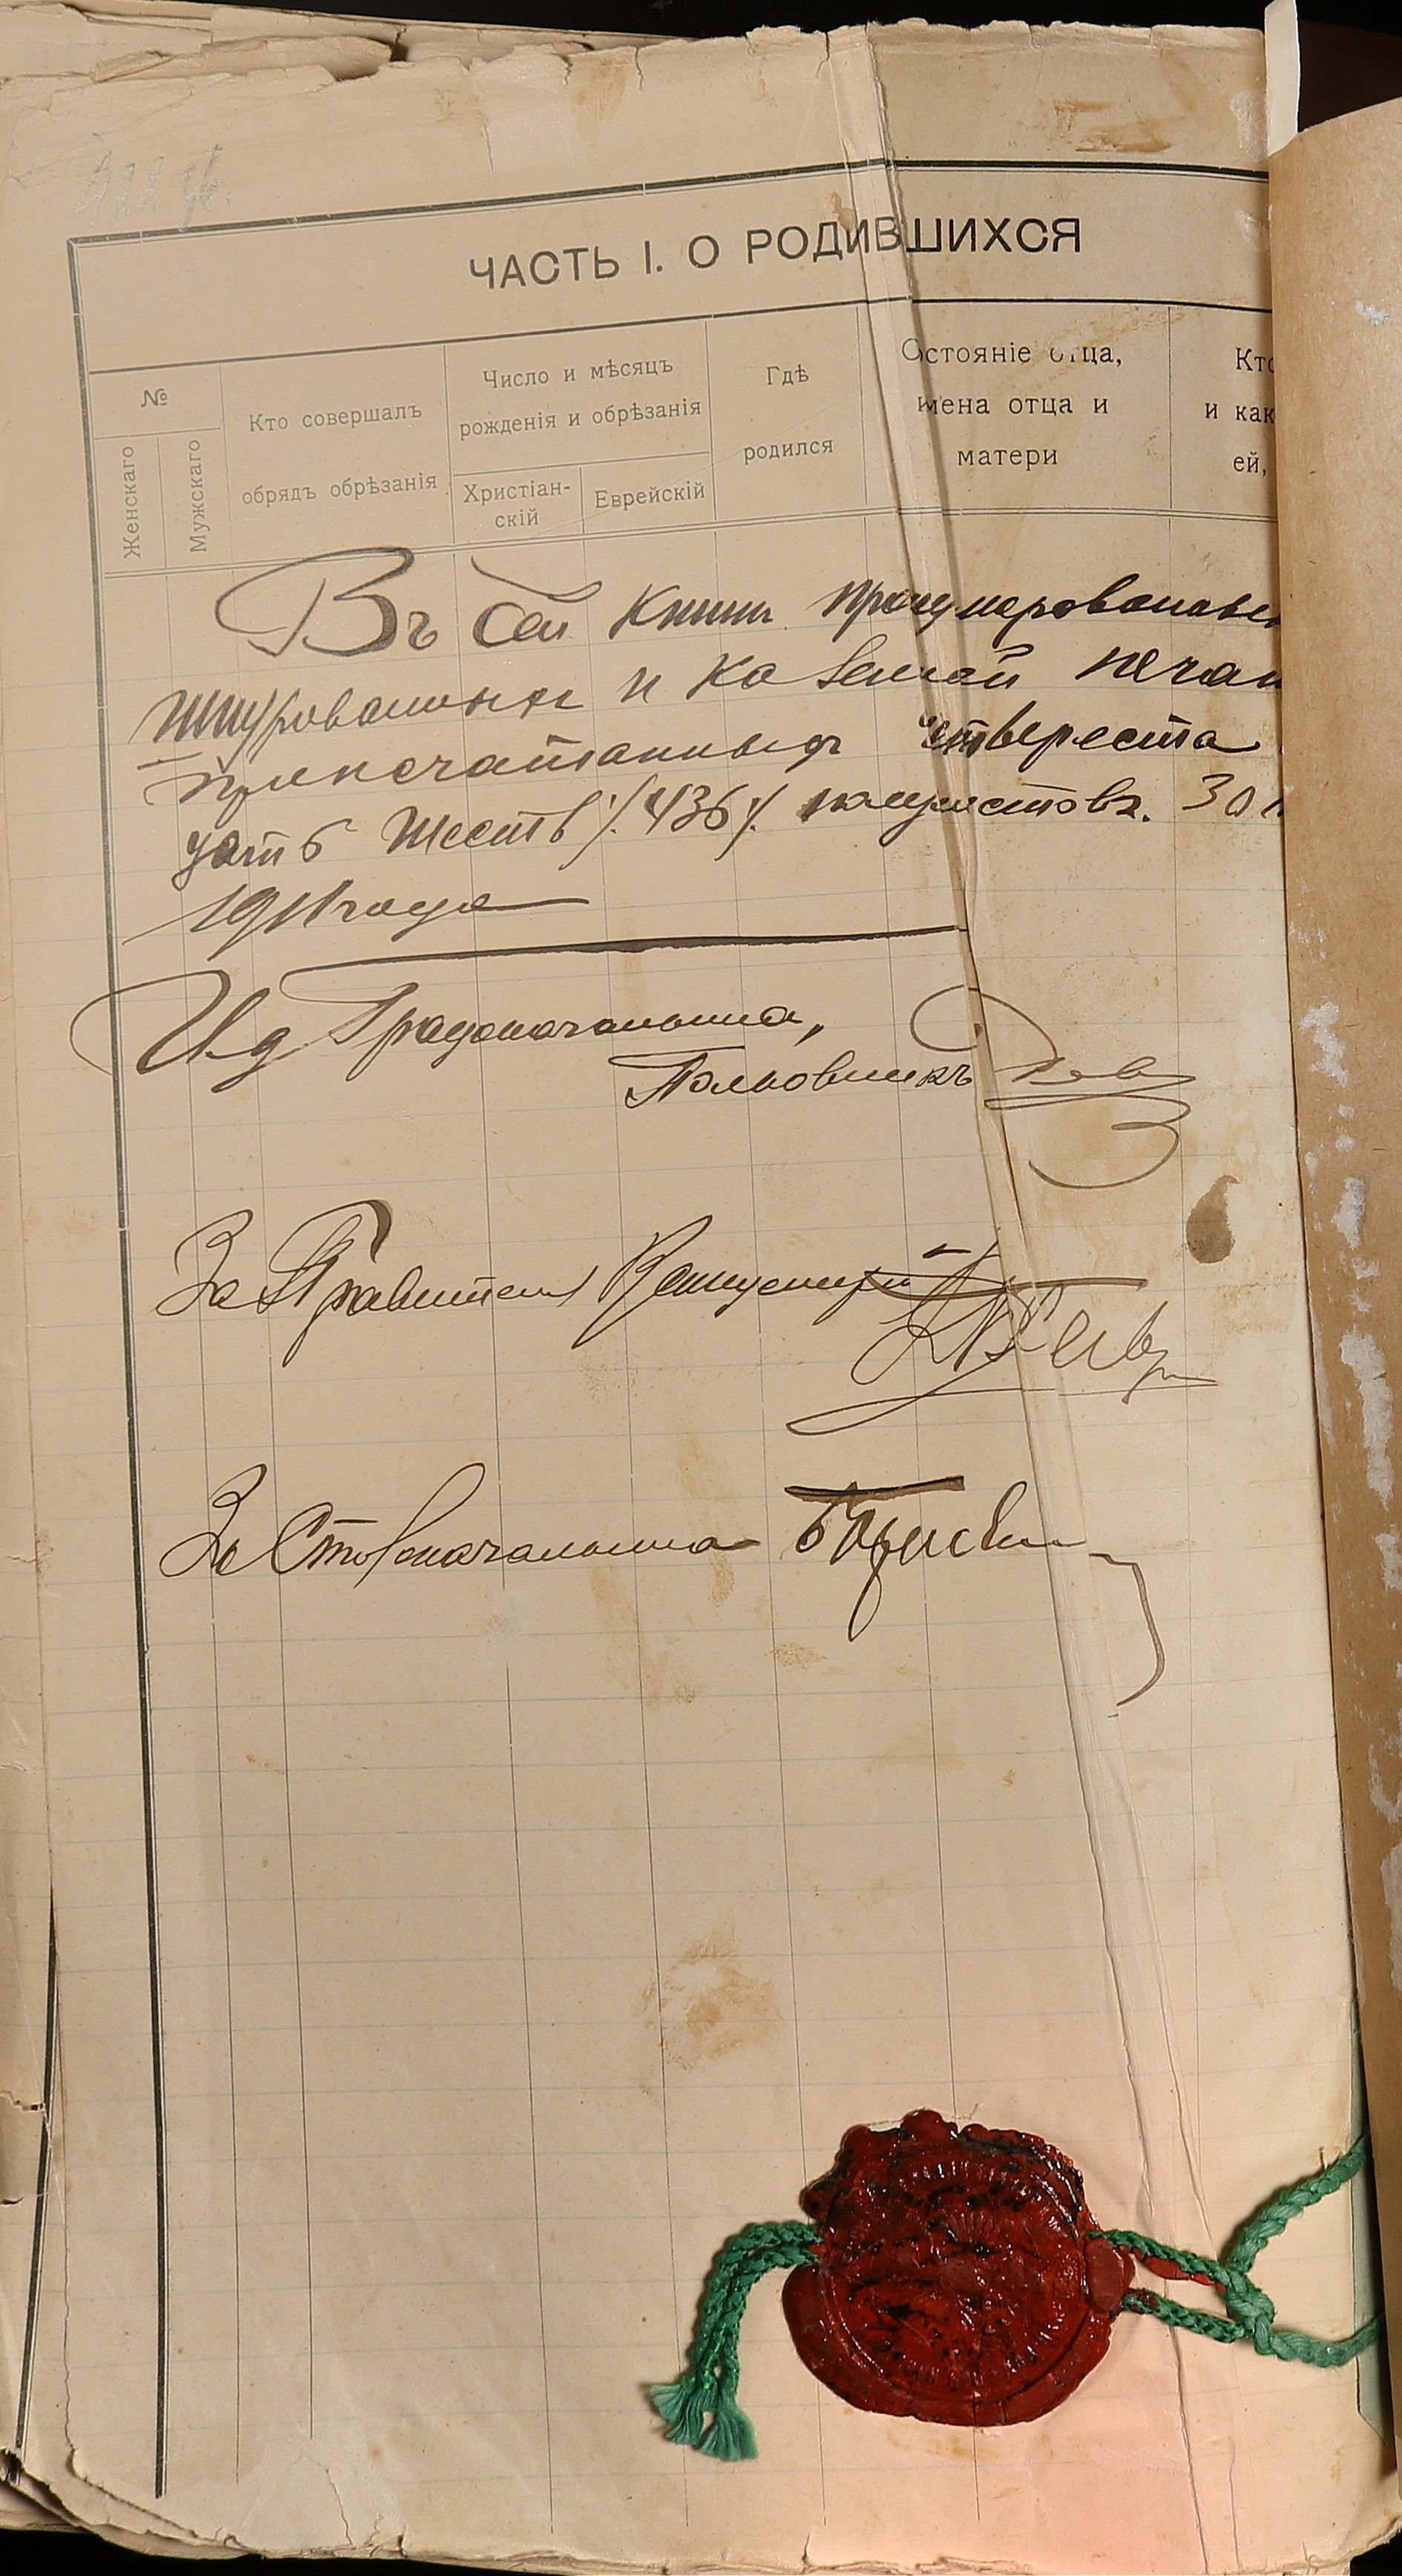 ЧАСТЬ I. О РОДИВШИХСЯ
№
Женскаго
Мужскаго
Кто совершалъ
обрядъ обрѣзанія
Число и мѣсяцъ
рожденія и обрѣзанія
Христіан-
скій
Еврейскій
Гдѣ
родился
Состояніе отца,
имена отца и
матери
Кто
и как
ей,
Въ сей книгѣ пронумерованныхъ
шнурованныхъ и казенной печат
припечатанныхъ четыреста
цать шесть /.436/. полулистовъ. 30
1911 года
И. д. Градоначальника,
Полковникъ
За Правителя Канцеляріи
За Столоначальника